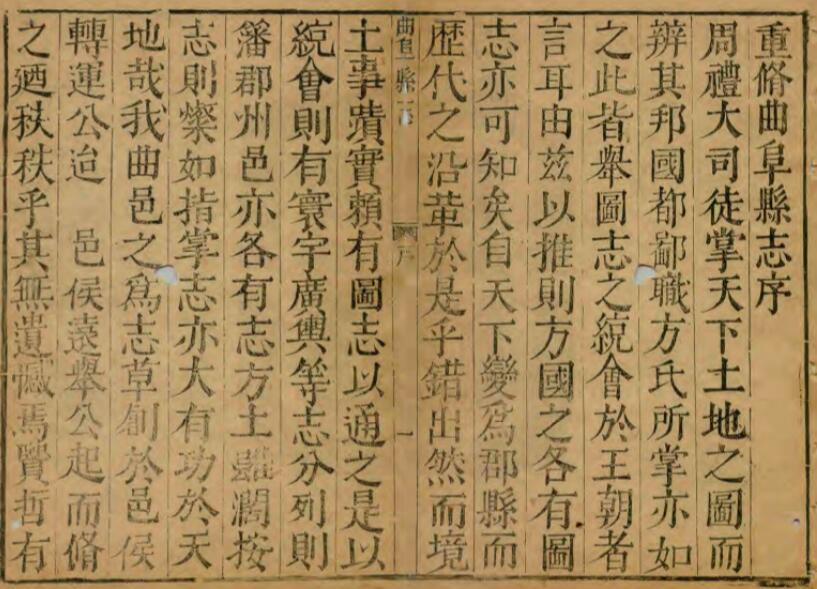 重脩曲阜縣志序
周禮大司徒掌天下土地之圖而
辨其邦國都鄙職方氏所掌亦如
之此皆舉圖志之統會於王朝者
言耳由兹以推則方國之各有圖
志亦可知矣自天下變爲郡縣而
歷代之沿革於是乎錯出然而境
曲阜縣志 序 一
土事蹟實賴有圖志以通之是以
統會則有寰宇廣輿等志分列則
籓郡州邑亦各有志方土雖濶按
志則燦如指掌志亦大有功於天
地哉我曲邑之爲志草創於邑侯
轉運公迨 邑侯遠舉公起而脩
之廼秩秩乎其無遺憾焉賢哲有